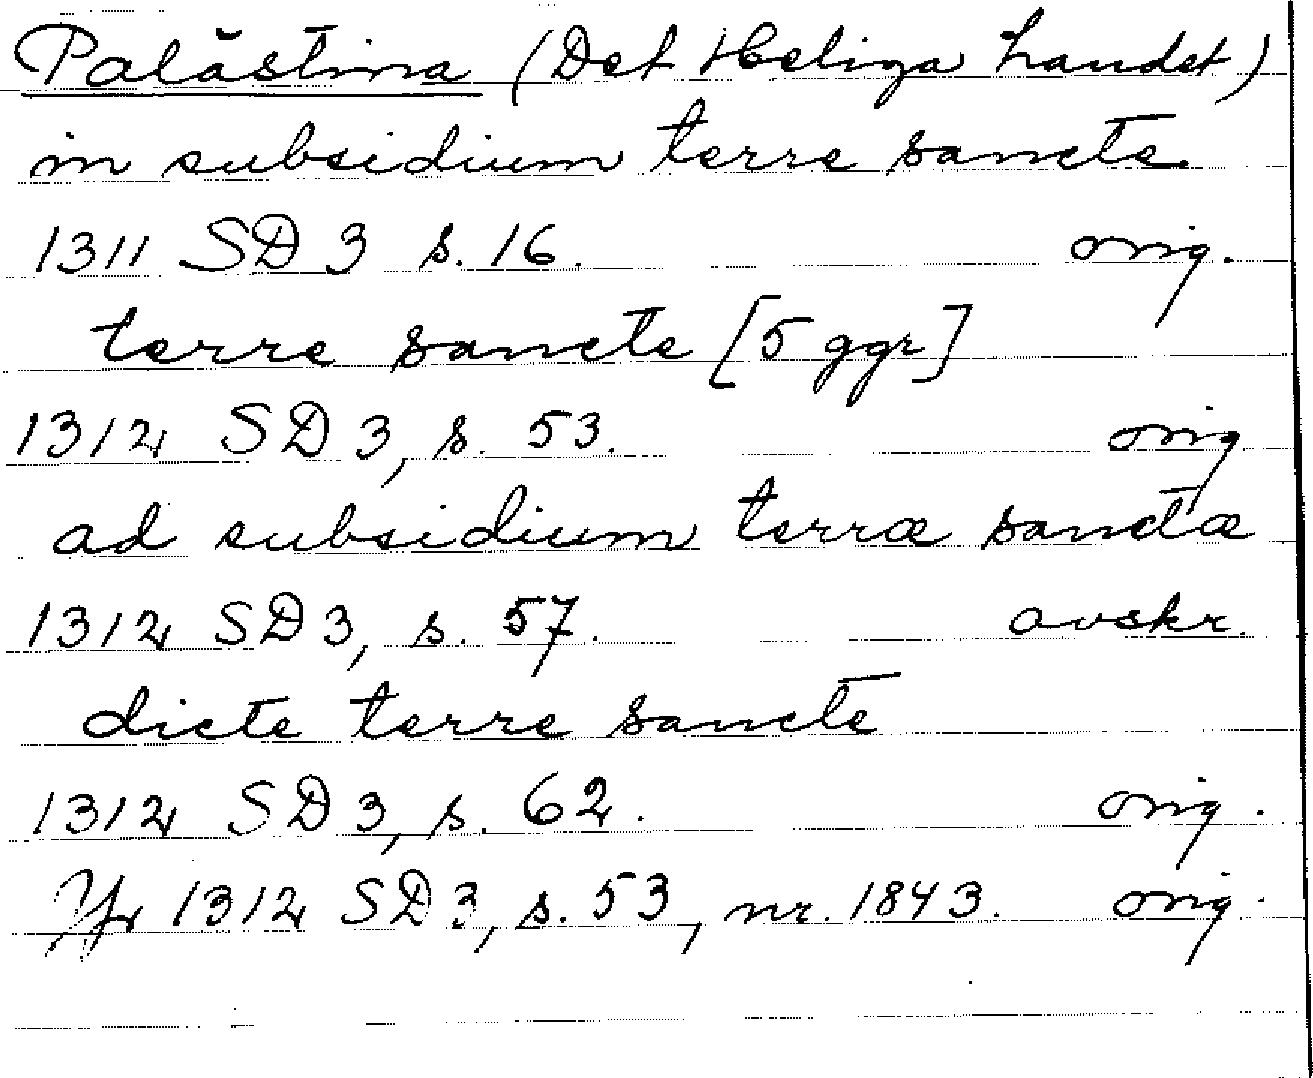 Palästina (Det Heliga Landet)
in subsidium terre sancte
1311 SD 3 s. 16. orig.
terre sancte [5 ggr]
1312 SD 3, s. 53. orig
ad subsidium terræ sanctæ
1312 SD 3, s. 57. avskr.
dicte terre sancte
1312 SD 3, s. 62. orig.
1312 SD 3, s. 53, nr. 1843. orig.